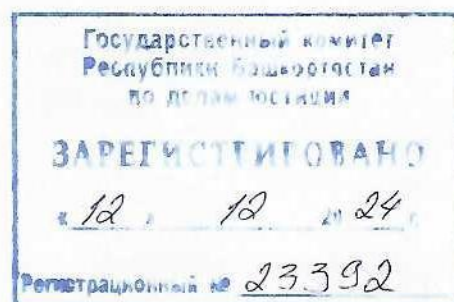 Государственный комитет
Республики Башкортостан
по делам юстиции
ЗАРЕГИСТРИРОВАНО
« 12 » 12 20 24 г.
Регистрационный № 23392